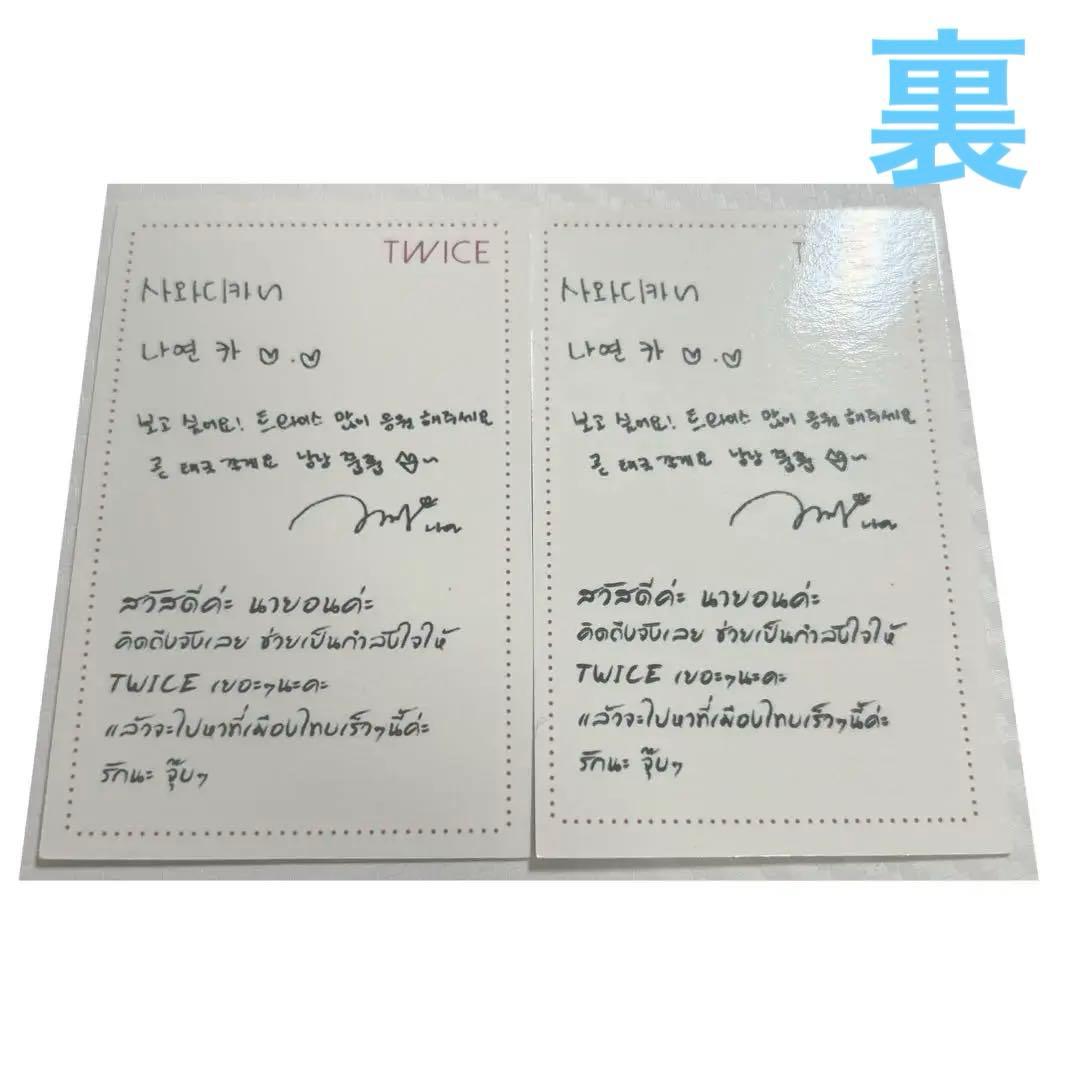 裏
TWICE
사와디카~
나연 카 ♡.♡
보고 싶어요! 트와이스 많이 응원 해주세요
곧 태국 갈게요 냥냥 쭙쭙 ♡~
สวัสดีค่ะ นายอนค่ะ
คิดถึงจังเลย ช่วยเป็นกำลังใจให้
TWICE เยอะๆนะคะ
แล้วจะไปหาที่เมืองไทยเร็วๆนี้ค่ะ
รักนะ จุ๊บๆ
사와디카~
나연 카 ♡.♡
보고 싶어요! 트와이스 많이 응원 해주세요
곧 태국 갈게요 냥냥 쭙쭙 ♡~
สวัสดีค่ะ นายอนค่ะ
คิดถึงจังเลย ช่วยเป็นกำลังใจให้
TWICE เยอะๆนะคะ
แล้วจะไปหาที่เมืองไทยเร็วๆนี้ค่ะ
รักนะ จุ๊บๆ